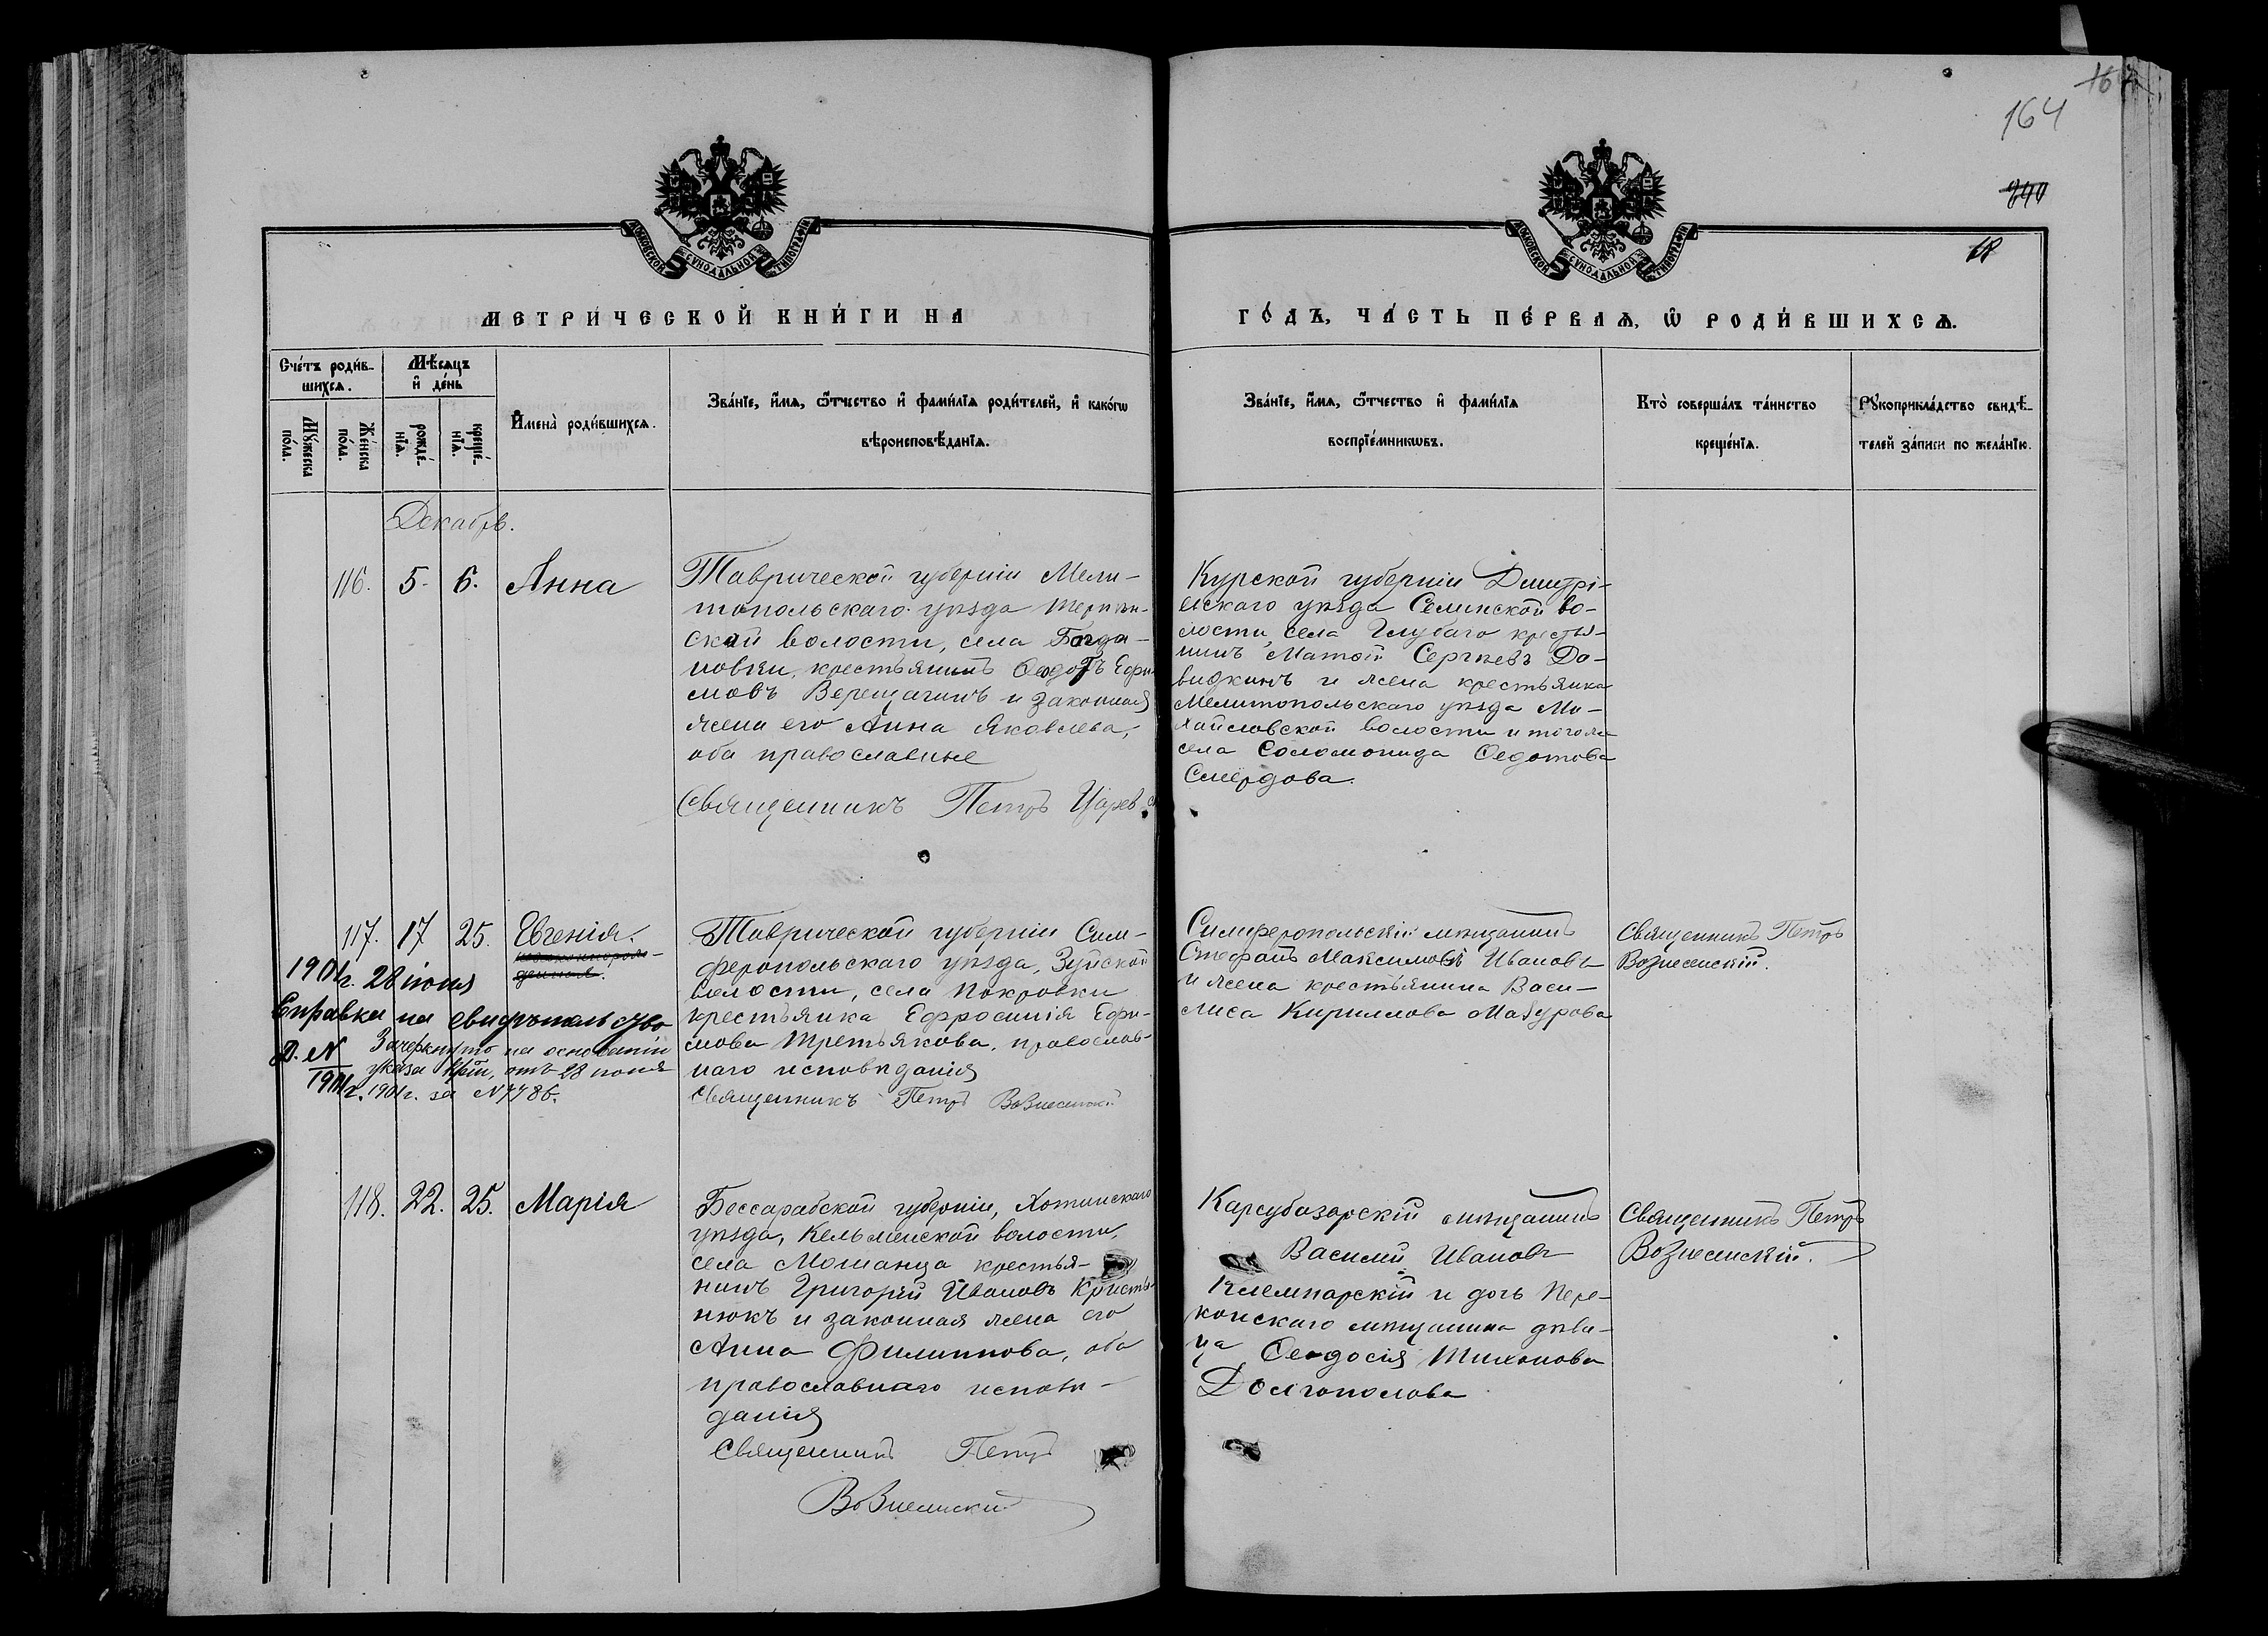 164
МОСКОВСКОЙ СѴНОДАЛЬНОЙ ТИПОГРАФІИ
МОСКОВСКОЙ СѴНОДАЛЬНОЙ ТИПОГРАФІИ
МЕТРИ́ЧЕСКОЙ КНИ́ГИ НА
ГО́ДЪ, ЧА́СТЬ ПЕ́РВАѦ, Ѡ҆ РОДИ́ВШИХСѦ.
Сче́тъ роди́в-
шихсѧ.
Мѣ́сѧцъ
и҆ де́нь
Мꙋ́жеска
по́ла.
Же́нска
по́ла.
рожде́-
нїѧ.
креще́-
нїѧ.
И҆мена̀ роди́вшихсѧ.
Зва́нїе, и҆́мѧ, ѻ҆́тчество и҆ фами́лїѧ роди́телей, и҆ како́гѡ
вѣроисповѣ́данїѧ.
Зва́нїе, и҆́мѧ, ѻ҆́тчество и҆ фами́лїѧ
воспрїе́мникѡвъ.
Кто̀ соверша́лъ та́инство
креще́нїѧ.
Рꙋкоприкла́дство свидѣ́-
телей за́писи по жела́нїю.
Декабрь.
116. 5. 6. Анна
Таврической губерніи Мели-
топольскаго уѣзда Терпѣни-
ской волости, села Богда-
новки, крестьянинъ Ѳеодотъ Ефи-
мовъ Верещагинъ и законная
жена его Анна Яковлева,
оба православные
Священникъ Петръ Царев
Курской губерніи Дмитрі-
евскаго уѣзда Селинской во-
лости, села Глубаго крестья-
нинъ Матѳій Сергѣевъ Да-
видкинъ и жена крестьянина
Мелитопольскаго уѣзда Ми-
хайловской волости и того же
села Соломонида Ѳедотова
Смердова.
117. 17 25. Евгенія.
1901г. 28 іюня
Справка на свидѣтельство
Д. №
1901г.
Зачеркнуто на основаніи
указа отъ 28 іюня
1901г. за № 7786.
Таврической губерніи Сим-
феропольскаго уѣзда, Зуйской
волости, села Покровки
крестьянка Ефросинія Ефи-
мова Третьякова, православ-
наго исповѣданія
Священникъ Петръ Вознесенскій
Симферопольскій мѣщанинъ
Стефанъ Максимовъ Ивановъ
и жена крестьянина Васи-
лиса Кириллова Мазурова
Священникъ Петръ
Вознесенскій.
118. 22. 25. Марія
Бессарабской губерніи, Хотинскаго
уѣзда, Кельменской волости,
села Мошанца крестья-
нинъ Григорій Ивановъ Кристы-
нюкъ и законная жена его
Анна Филиппова, оба
православнаго исповѣ-
данія
Священникъ Петръ
Вознесенскій
Карсубазарскій мѣщанинъ
Василій Ивановъ
Клемпарскій и дочь Пере-
копскаго мѣщанина дѣви-
ца Ѳеодосія Тихонова
Долгополова
Священникъ Петръ
Вознесенскій.